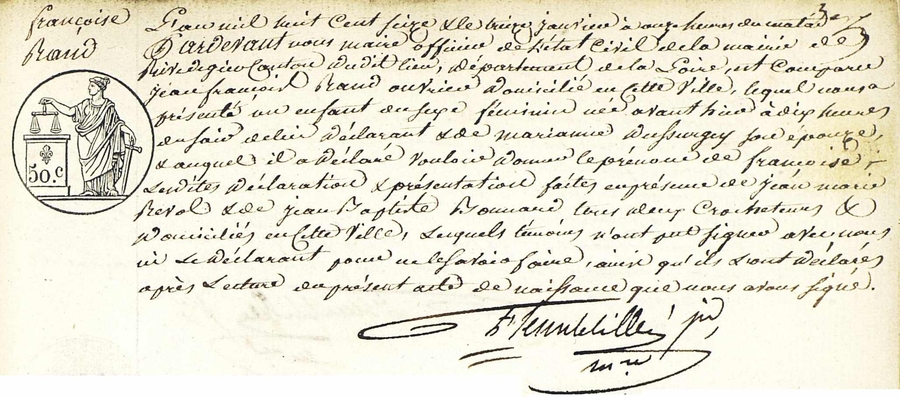 françoise
Rand
50. c
L'an mil huit cent seize & le treize janvier à onze heures du matin
Pardevant nous maire officier de l'état Civil de la mairie de
Rivedegier Canton dudit lieu, département de la Loire, est Comparu
jean françois Rand ouvrier domicilié en Cette Ville, lequel nous a
présenté un enfant du sexe féminin née avant hier à dix heures
du soir de lui déclarant & de marianne Dussurgey son épouze,
& auquel il a déclaré vouloir donner le prénom de françoise ;
Lesdites déclaration & présentation faites en présence de jean marie
Revol & de jean Baptiste Bonnard tous deux Crocheteurs &
domiciliés en Cette Ville, Lesquels témoins n'ont pu signer avec nous
ni Le déclarant pour ne le Savoir faire, ainsi qu'ils L'ont déclarés
après Lecture du présent acte de naissance que nous avons signé.
jn
m.re